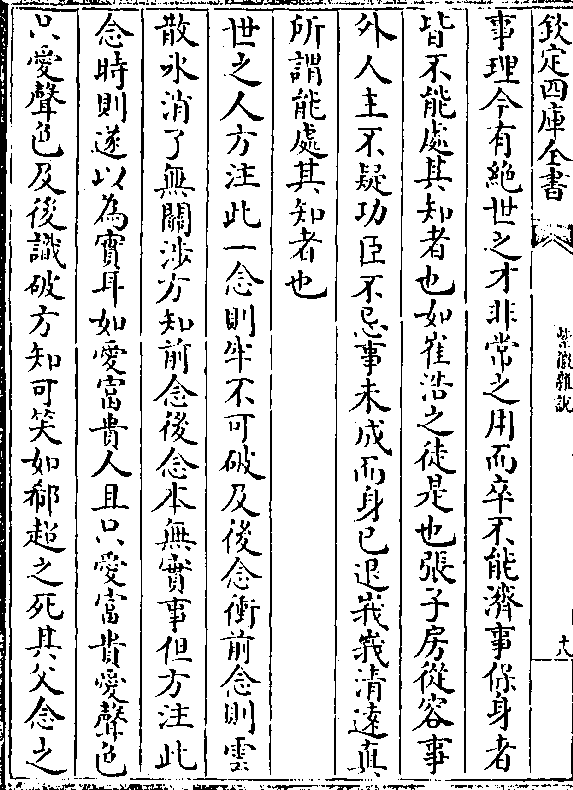 欽定四庫全書
紫微雜説
十八
事理今有絶世之才非常之用而卒不能濟事保身者
皆不能處其知者也如崔浩之徒是也張子房從容事
外人主不疑功臣不忌事未成而身已退峩峩清遠真
所謂能處其知者也
世之人方注此一念則牢不可破及後念衝前念則雲
散氷消了無關涉方知前念後念本無實事但方注此
念時則遂以為實耳如愛富貴人且只愛富貴愛聲色
只愛聲色及後識破方知可笑如郗超之死其父念之